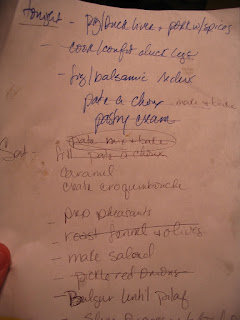 tonight - pig/duck liver + pork w/spices
- cook/confit duck legs
- fig/balsamic reduc
pate a choux - make + bake
pastry cream
pate mix + bake
Sat - fill pate a choux
caramel
create croquembouche
- prep pheasants
- roast fennel + olives
- make salad
- pickle red onions
- Bulgur lentil pilaf